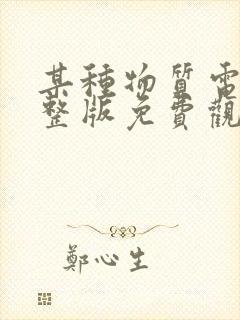 某種物質電
整版免費觀
鄭心生